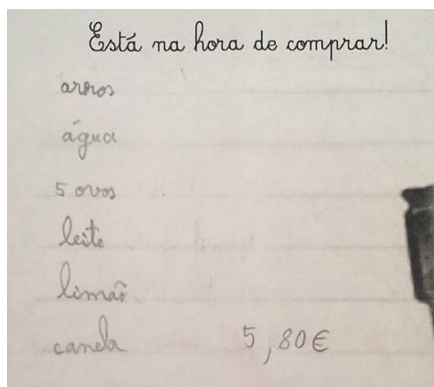 Está na hora de comprar!
arros
água
5 ovos
leite
limão
canela 5,80€